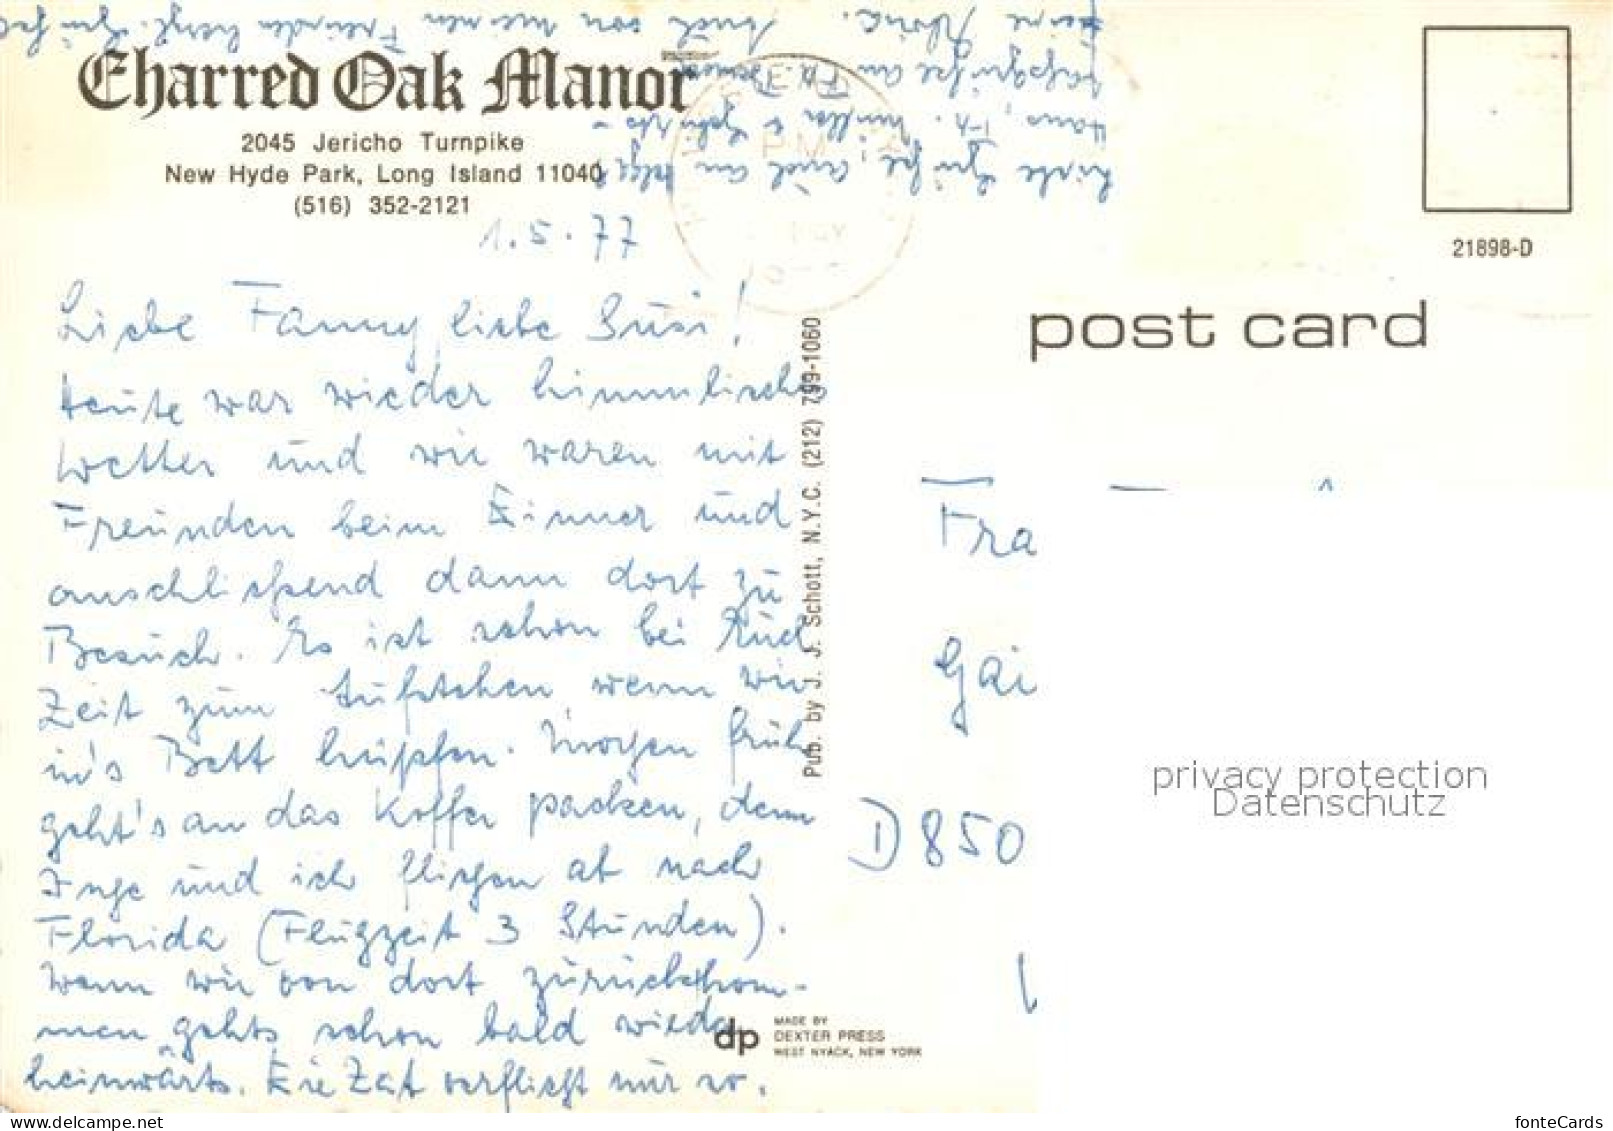 Charred Oak Manor
2045 Jericho Turnpike
New Hyde Park, Long Island 11040
(516) 352-2121
1.5.77
Liebe Fanny, liebe Susi!
Heute war wieder himmlisches
Wetter und wir waren mit
Freunden beim Dinner und
anschließend dann dort zu
Besuch. Es ist schon bei Euch
Zeit zum Aufstehen wenn wir
in's Bett hüpfen. Morgen früh
geht's an das Koffer packen, denn
Inge und ich fliegen ab nach
Florida (Flugzeit 3 Stunden).
Wenn wir von dort zurückkom-
men gehts schon bald wieder
heimwärts. Die Zeit verfliegt nur so.
Liebe Grüße, auch an Helga
Hans, Fr. Müller &
Grüße an Fa.
Auch von meinen Freunden herzl. Grüße
PM
Pub. by J. J. Schott, N.Y.C. (212) 799-1060
dp
MADE BY
DEXTER PRESS
WEST NYACK, NEW YORK
21898-D
post card
Fra
Gai
D 850
privacy protection
Datenschutz
www.delcampe.net
fonteCards